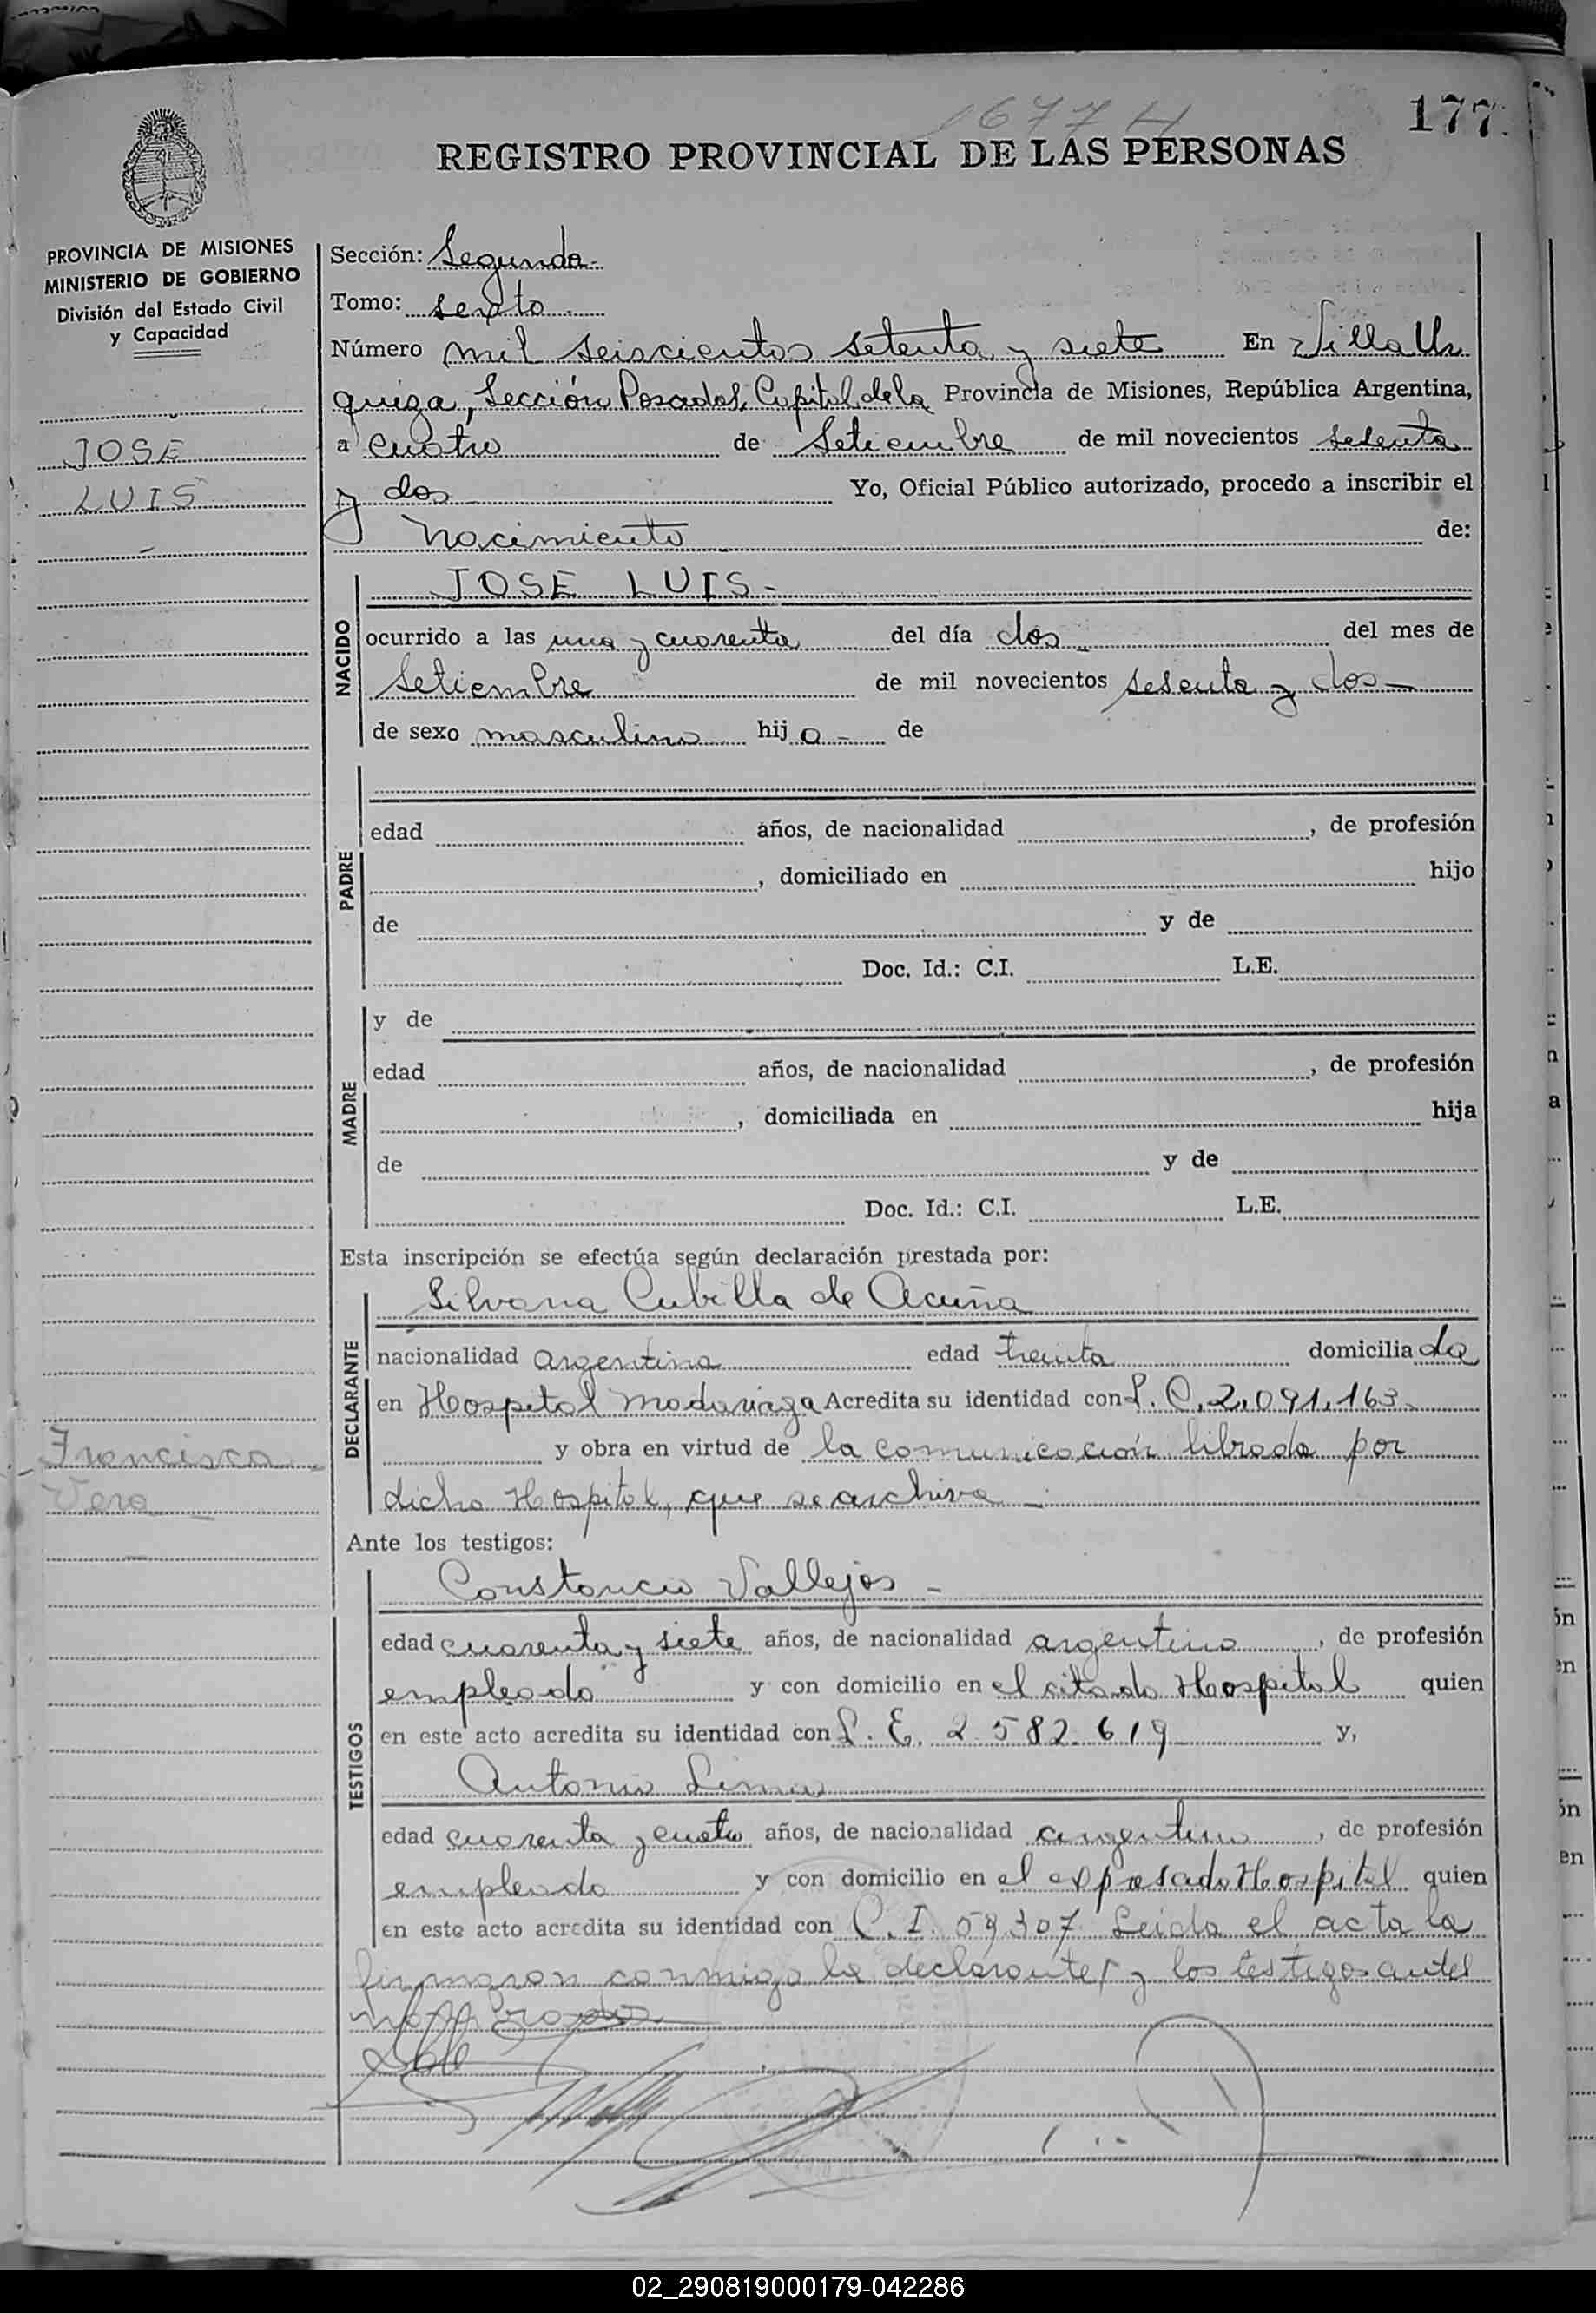 1677 H
177
REGISTRO PROVINCIAL DE LAS PERSONAS
PROVINCIA DE MISIONES
MINISTERIO DE GOBIERNO
División del Estado Civil
y Capacidad
JOSE
LUIS
Francisca
Vera
Sección: Segunda.
Tomo: sexto.
Número mil seiscientos setenta y siete En Villa Ur
quiza, Sección Posadas, Capital de la Provincia de Misiones, República Argentina,
a cuatro de Setiembre de mil novecientos sesenta
y dos Yo, Oficial Público autorizado, procedo a inscribir el
Nacimiento de:
NACIDO
JOSE LUIS.-
ocurrido a las una y cuarenta del día dos del mes de
Setiembre de mil novecientos sesenta y dos
de sexo masculino hijo de
PADRE
edad años, de nacionalidad , de profesión
, domiciliado en hijo
de y de
Doc. Id.: C.I. L.E.
MADRE
y de
edad años, de nacionalidad , de profesión
, domiciliada en hija
de y de
Doc. Id.: C.I. L.E.
Esta inscripción se efectúa según declaración prestada por:
DECLARANTE
Silvana Cubilla de Acuña
nacionalidad argentina edad treinta domiciliada
en Hospital Madariaga Acredita su identidad con L.C. 2.091.163
y obra en virtud de la comunicación librada por
dicho Hospital, que se archiva
Ante los testigos:
TESTIGOS
Constancio Vallejos -
edad cuarenta y siete años, de nacionalidad argentino, de profesión
empleado y con domicilio en el citado Hospital quien
en este acto acredita su identidad con L.E. 2.582.619 y,
Antonio
edad cuarenta y cuatro años, de nacionalidad argentino, de profesión
empleado y con domicilio en el expresado Hospital quien
en este acto acredita su identidad con C.I. 59.307 Leida el acta la
firmaron conmigo la declarante y los testigos antes
02_290819000179-042286